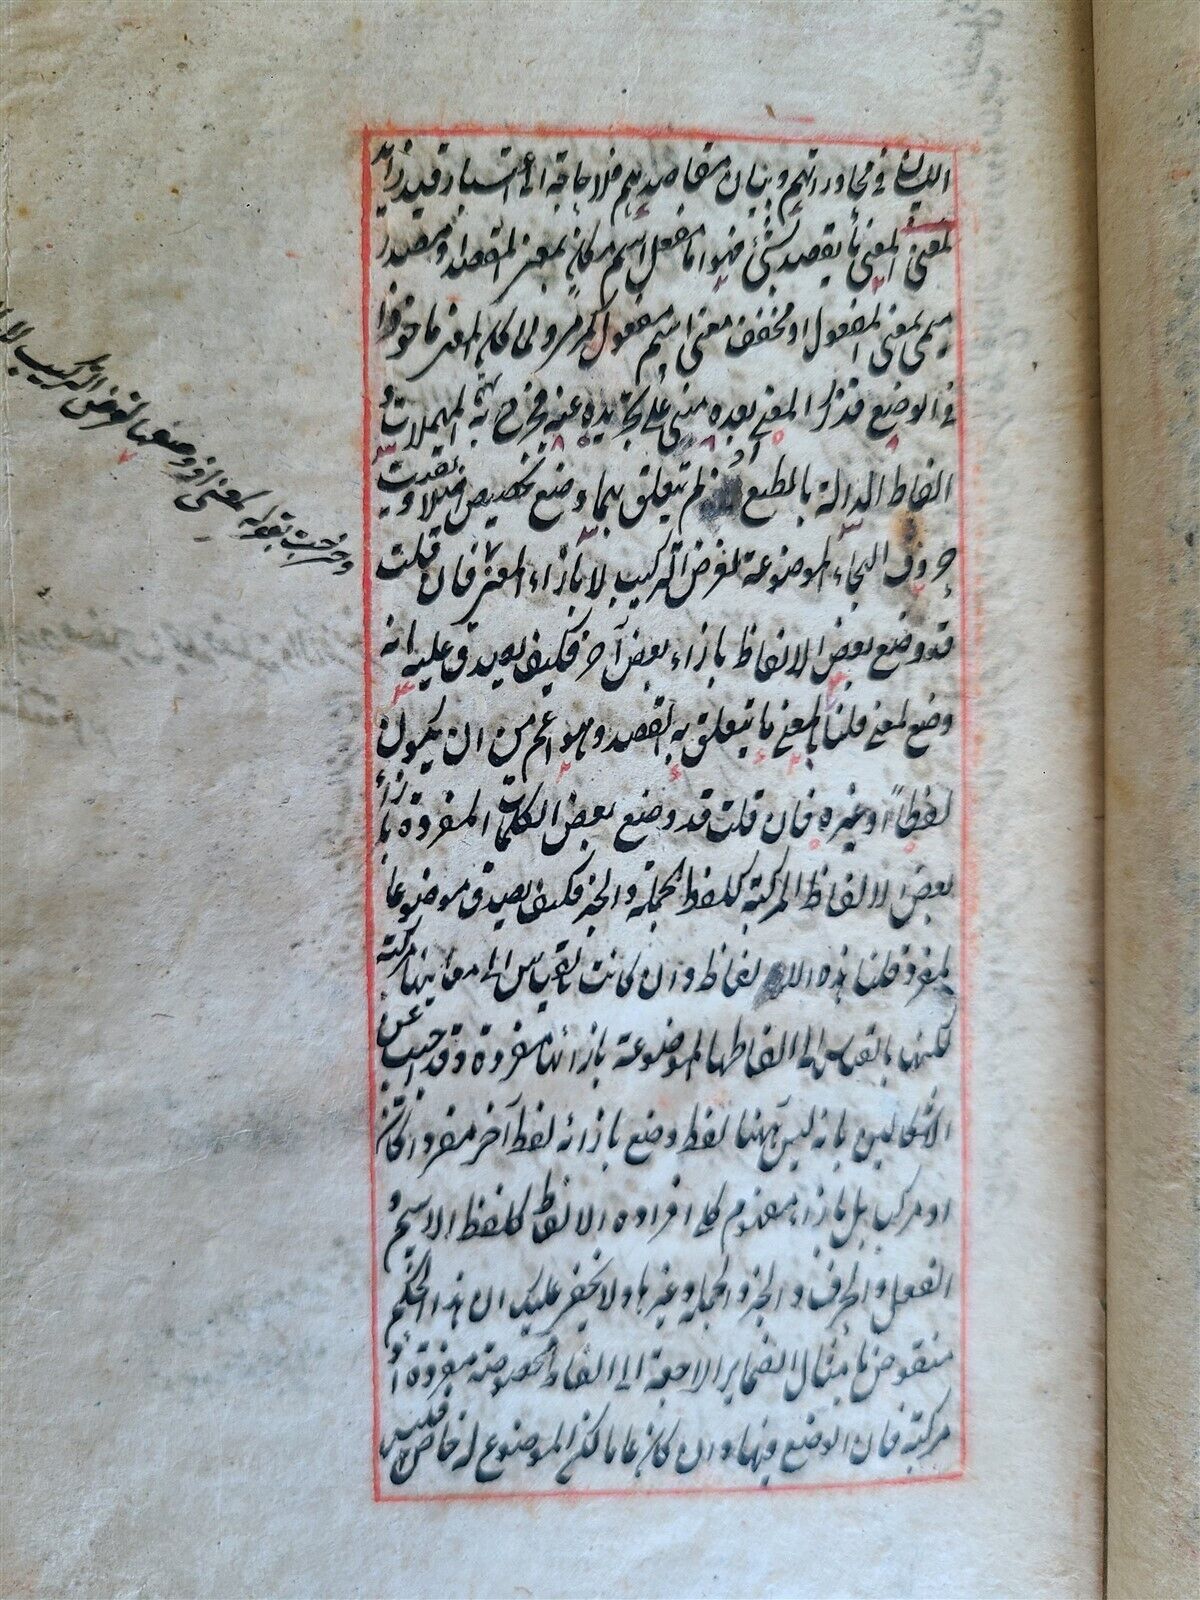 اللسان في محاوراتهم وبيان مقاصدهم فلا حاجة الى اعتبار قيد زايد
لمعنى المعنى ما يقصد بشئ فهو اما مفعل اسم مكان بمعنى المقصد او مصدر
ميمى بمعنى المفعول او مخفف معنى اسم مفعول كمرمى ولما كان المعنى ماخوذا
في الوضع فذكر المعنى بعده مبنى على تجريده عنه فخرج به المهملات و
الالفاظ الدالة بالطبع اذ لم يتعلق بهما وضع وتخصيص اصلا وبقيت
حروف الهجاء الموضوعة لغرض التركيب لا بازاء المعنى فان قلت
قد وضع بعض الالفاظ بازاء بعض آخر فكيف يصدق عليه انه
وضع لمعنى قلنا المعنى ما يتعلق به القصد وهو اعم من ان يكون
لفظاً او غيره فان قلت قد وضع بعض الكلمات المفردة بازاء
بعض الالفاظ المركبة كلفظ الجملة والخبر فكيف يصدق موضوعا
لمفرد قلنا هذه الالفاظ وان كانت بالقياس الى معانيها مركبة
لكنها بالقياس الى الفاظها الموضوعة بازائها مفردة وقد اجيب عن
الاشكالين بانه ليس ههنا لفظ وضع بازائه لفظ آخر مفردا كان
او مركب بل بازاء مفهوم كلى افراده الالفاظ كلفظ الاسم و
الفعل والحرف والخبر والجملة وغيرها ولا يخفى عليك ان هذا الحكم
منقوض بامثال الضماير الراجعة الى الفاظ مخصوصة مفردة او
مركبة فان الوضع فيها وان كان عاما لكن الموضوع له خاص فليس
وخرجت بقوله لمعنى اذ وضعها لغرض التركيب لا